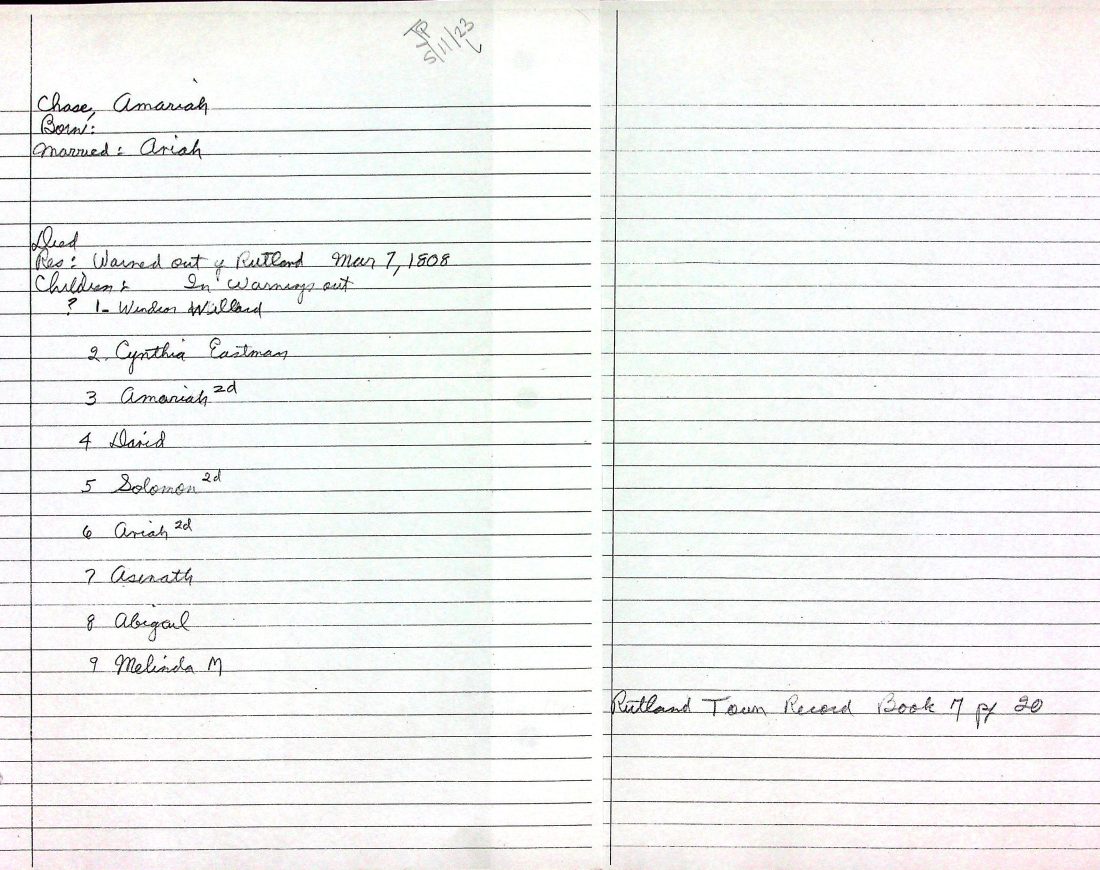 TP
5/11/23
Chase, Amariah
Born:
Married: Ariah
Died
Res: Warned out of Rutland Mar 7, 1808
Children: In Warnings out
? 1- Windsor Willard
2. Cynthia Eastman
3 Amariah 2d
4 David
5 Solomon 2d
6 Ariah 2d
7 Asenath
8 Abigail
9 Melinda M
Rutland Town Record Book 7 pg 20